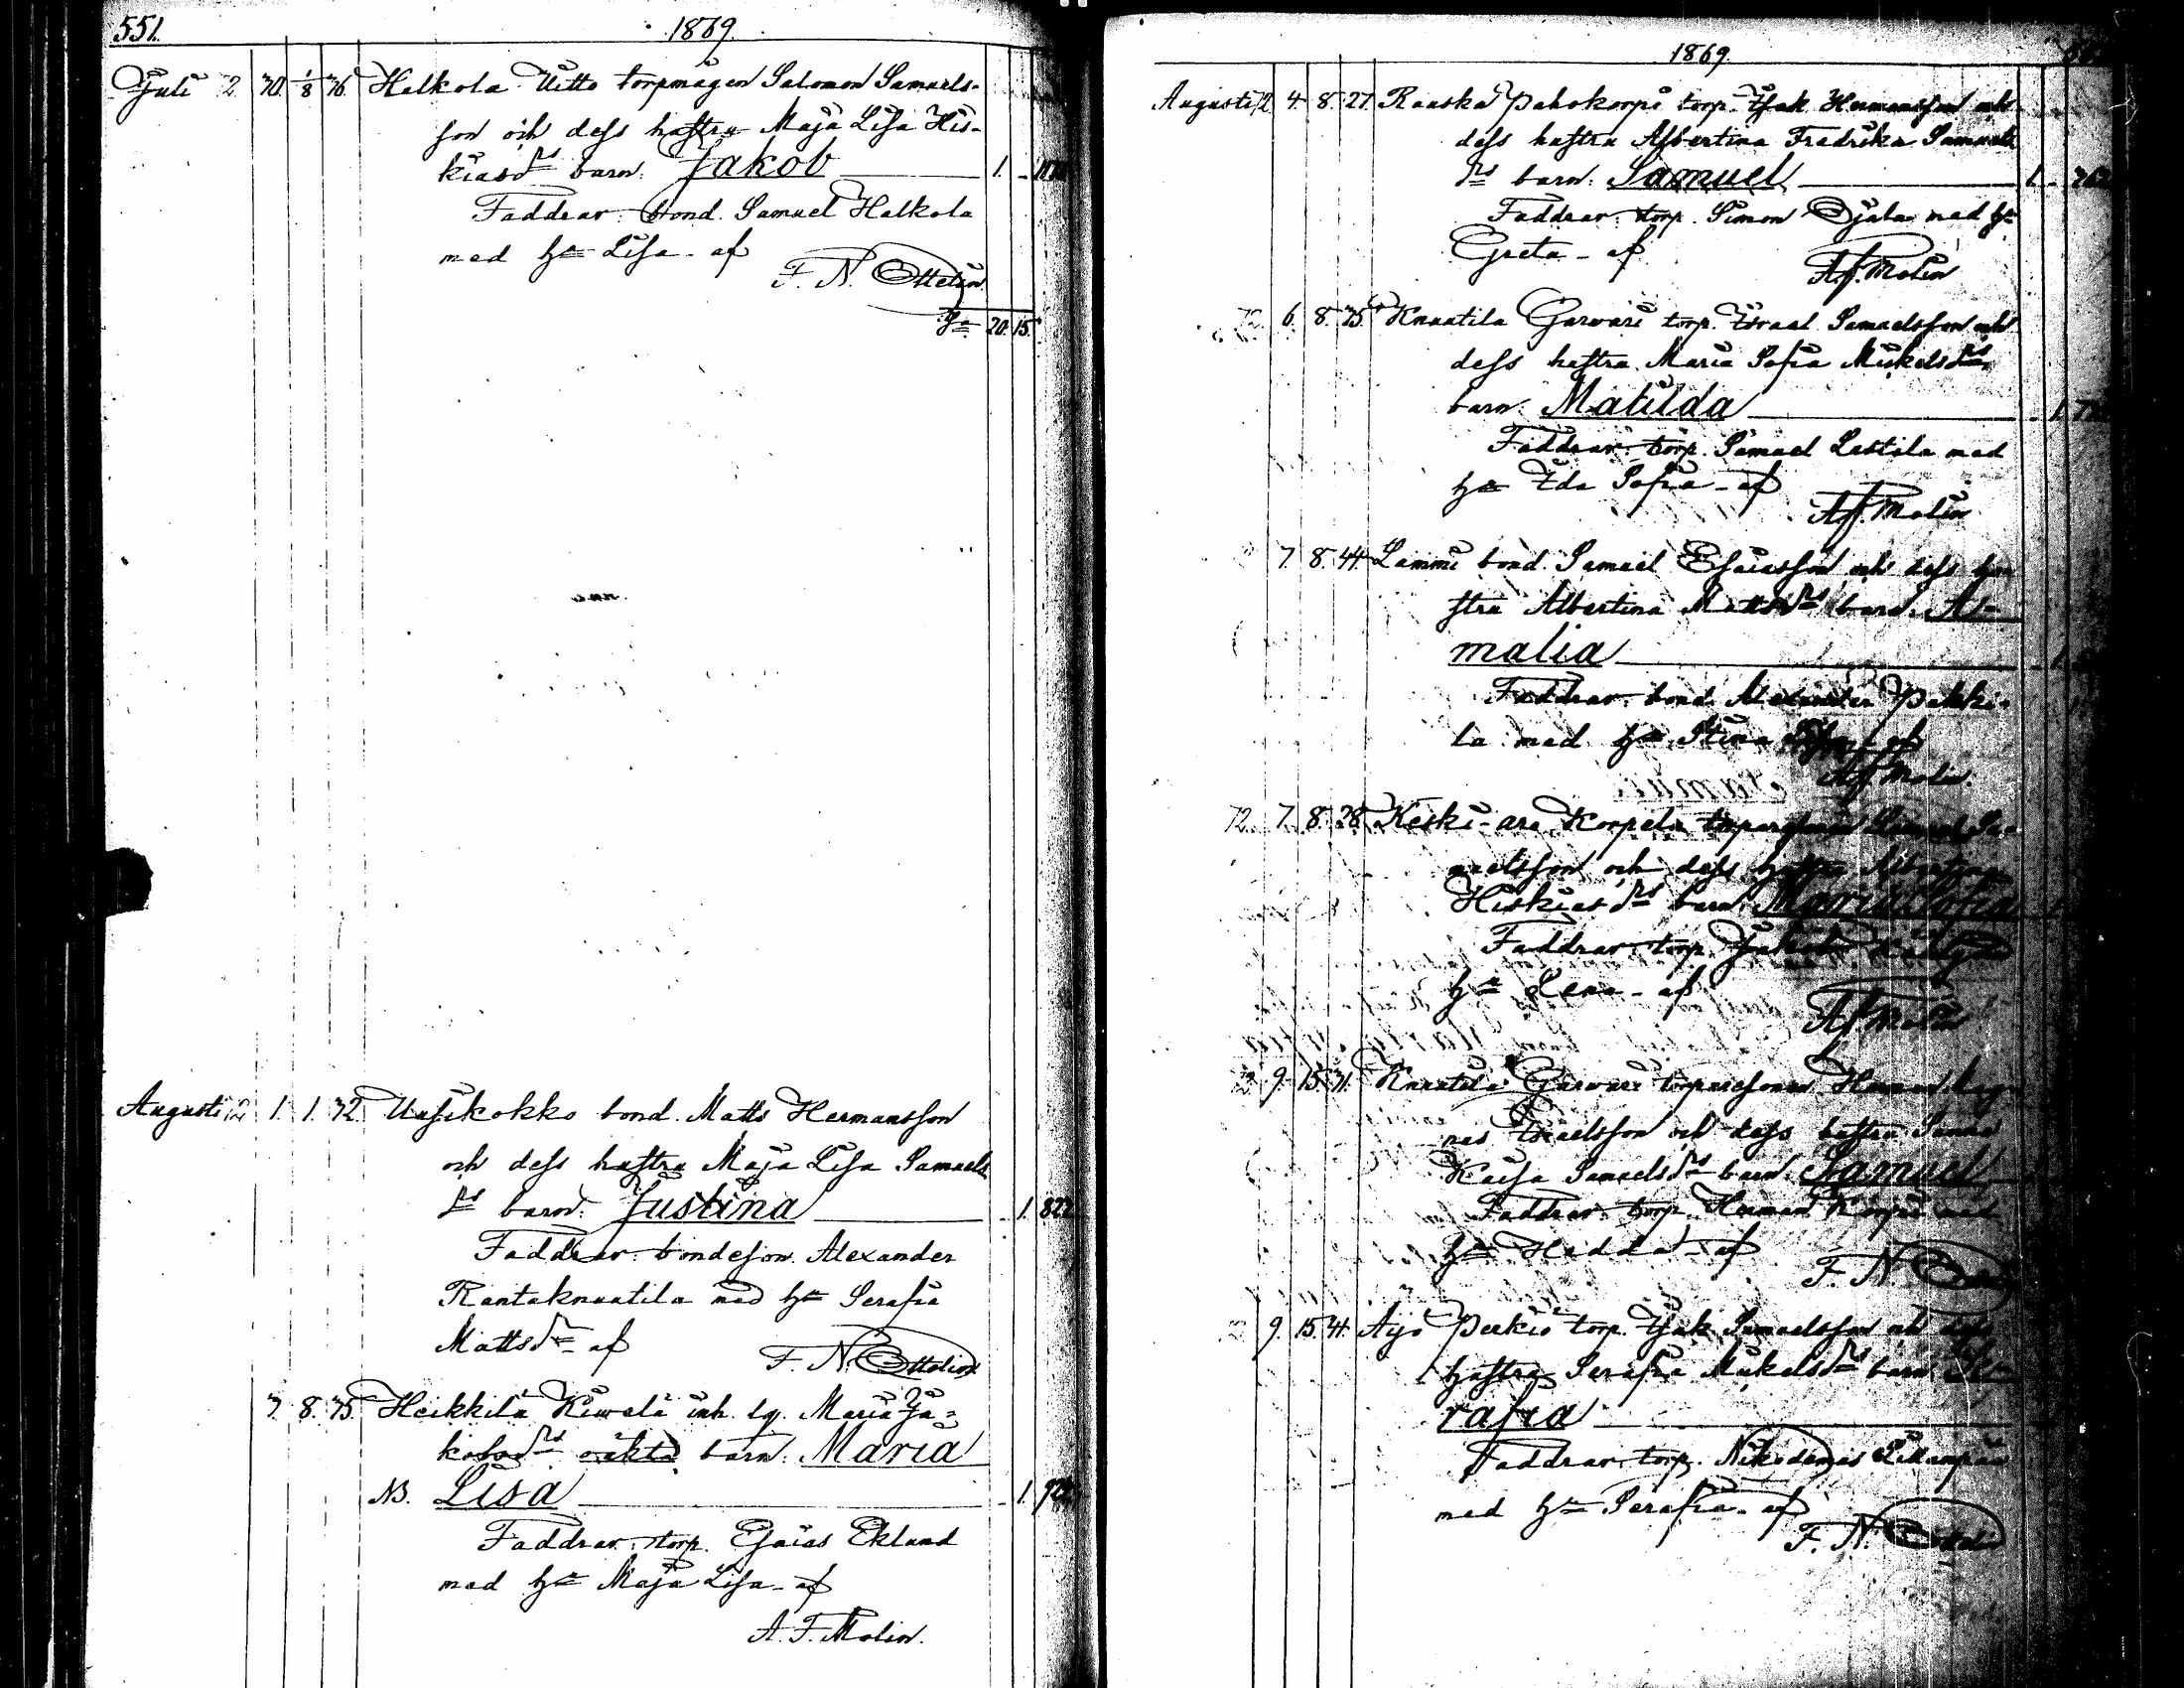 551.
1869.
Juli 2. 30. 1/8 76. Halkola Uitto torpmågen Salomon Samuels-
son och dess hustru Maja Lisa His-
kiasdr barn: Jakob 1.
Faddrar: bond. Samuel Halkola
med hu Lisa - af
F. N. Ottelin.
20. 15.
Augusti 1. 1. 72. Uusikokko bond. Matts Hermansson
och dess hustru Maja Lisa Samuels
dr barn: Justina 1.
Faddrar: bondeson Alexander
Rantaknaatila med hu Serafia
Mattsdr - af
F. N. Ottelin
7. 8. 75. Heikkilä Kiwelä inh. lg. Maria Ja-
kobsdr oäkta barn: Maria
NB. Lisa 1.
Faddrar: torp. Esaias Eklund
med hu Maja Lisa - af
A. F. Molin.
1869.
Augusti 4. 8. 27. Raaska Pahokorpi torp. Isak Hermansson och
dess hustru Albertina Fredrika Samuels
dr barn: Samuel 1.
Faddrar: torp. Simon Ojala med hu
Greta - af
A. F. Molin
72. 6. 8. 75. Knaatila Garwari torp. Israel Samuelsson och
dess hustru Maria Sofia Mikelsdr
barn: Matilda 1.
Faddrar: torp. Samuel Lestila med
hu Ida Sofia - af
A. F. Molin
7. 8. 44. Lammi bond. Samuel Esaiasson och dess hu-
stru Albertina Mattsdr barn: A-
malia 1.
Faddrar: bond. Alexander Pakki-
la med hu Stina af
A. F. Molin.
72. 7. 8. 28. Keski-aro Korpela Samuel Sa-
muelsson och dess hustru Albertina
Hiskiasdr barn: Maria Sofia
Faddrar: torp. Jakob
hu Lena - af
A. F. Molin
9. 15. 31. Knaatila Garwari torparesonen Herman Mag-
nus Israelsson och dess hustru Sanna
Kaisa Samuelsdr barn: Samuel
Faddrar: torp. Herman Korpi med
hu Hedda - af
F. N. Ottelin
9. 15. 41. Äijö Perkiö torp. Isak Samuelsson och dess
hustru Serafia Mikelsdr barn: Se-
rafia
Faddrar: torp. Nikodemus Liikanpää
med hu Serafia - af
F. N. Ottelin